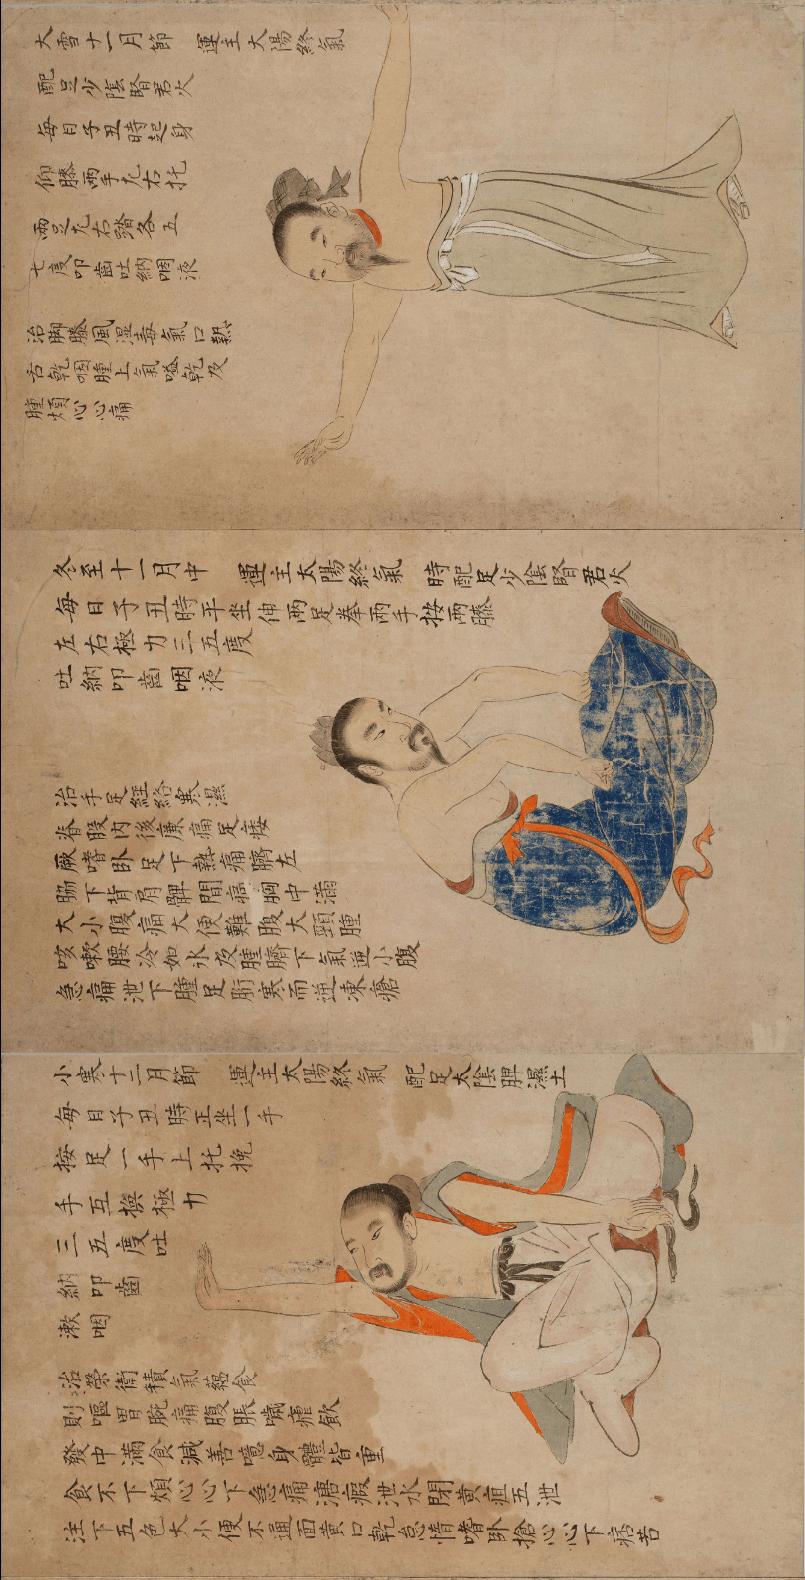 大雪十一月節 運主太陽終氣
配足少陰腎君火
每日子丑時起身
仰膝兩手左右托
兩足左右踏各五
七度叩齒吐納咽液
治脚膝風湿毒氣口熱
舌乾咽腫上氣嗌乾及
腫煩心心痛
冬至十一月中 運主太陽終氣 時配足少陰腎君火
每日子丑時平坐伸兩足拳兩手按兩膝
左右極力三五度
吐納叩齒咽液
治手足經絡寒濕
脊股内後廉痛足痿
厥嗜卧足下熱痛臍左
脇下背肩髀間痛胸中滿
大小腹痛大便難腹大頸腫
咳嗽腰冷如氷及腫臍下氣逆小腹
急痛泄下腫足胻寒而逆凍瘡
小寒十二月節 運主太陽終氣 配足太陰脾濕土
每日子丑時正坐一手
按足一手上托挽
手互換極力
三五度吐
納叩齒
漱咽
治榮衛積氣蘊食
則嘔胃脘痛腹脹噦瘧飲
發中滿食減善噫身體皆重
食不下煩心心下急痛溏瘕泄水閉黃疸五泄
注下五色大小便不通面黃口乾怠惰嗜卧搶心心下痞苦